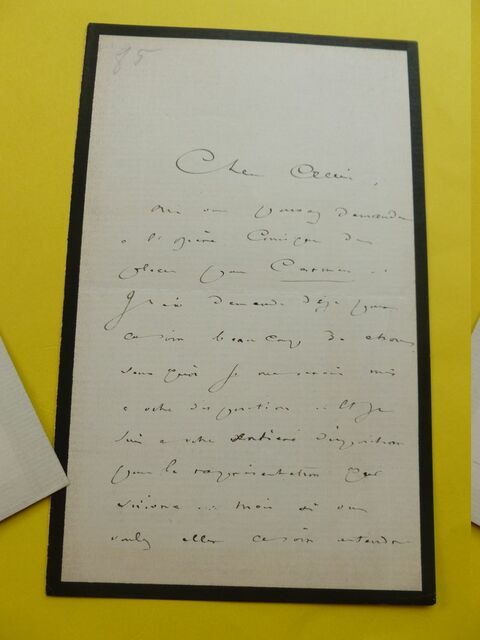 85
Cher ami,
Si vous pouvez demander
à l'Opéra Comique des
places pour Carmen ..
J'ai demandé déjà pour
ce soir beaucoup de choses
sans quoi je me serais mis
à votre disposition .. Et je
suis à votre entière disposition
pour la représentation que
.. mais si vous
voulez aller ce soir entendre